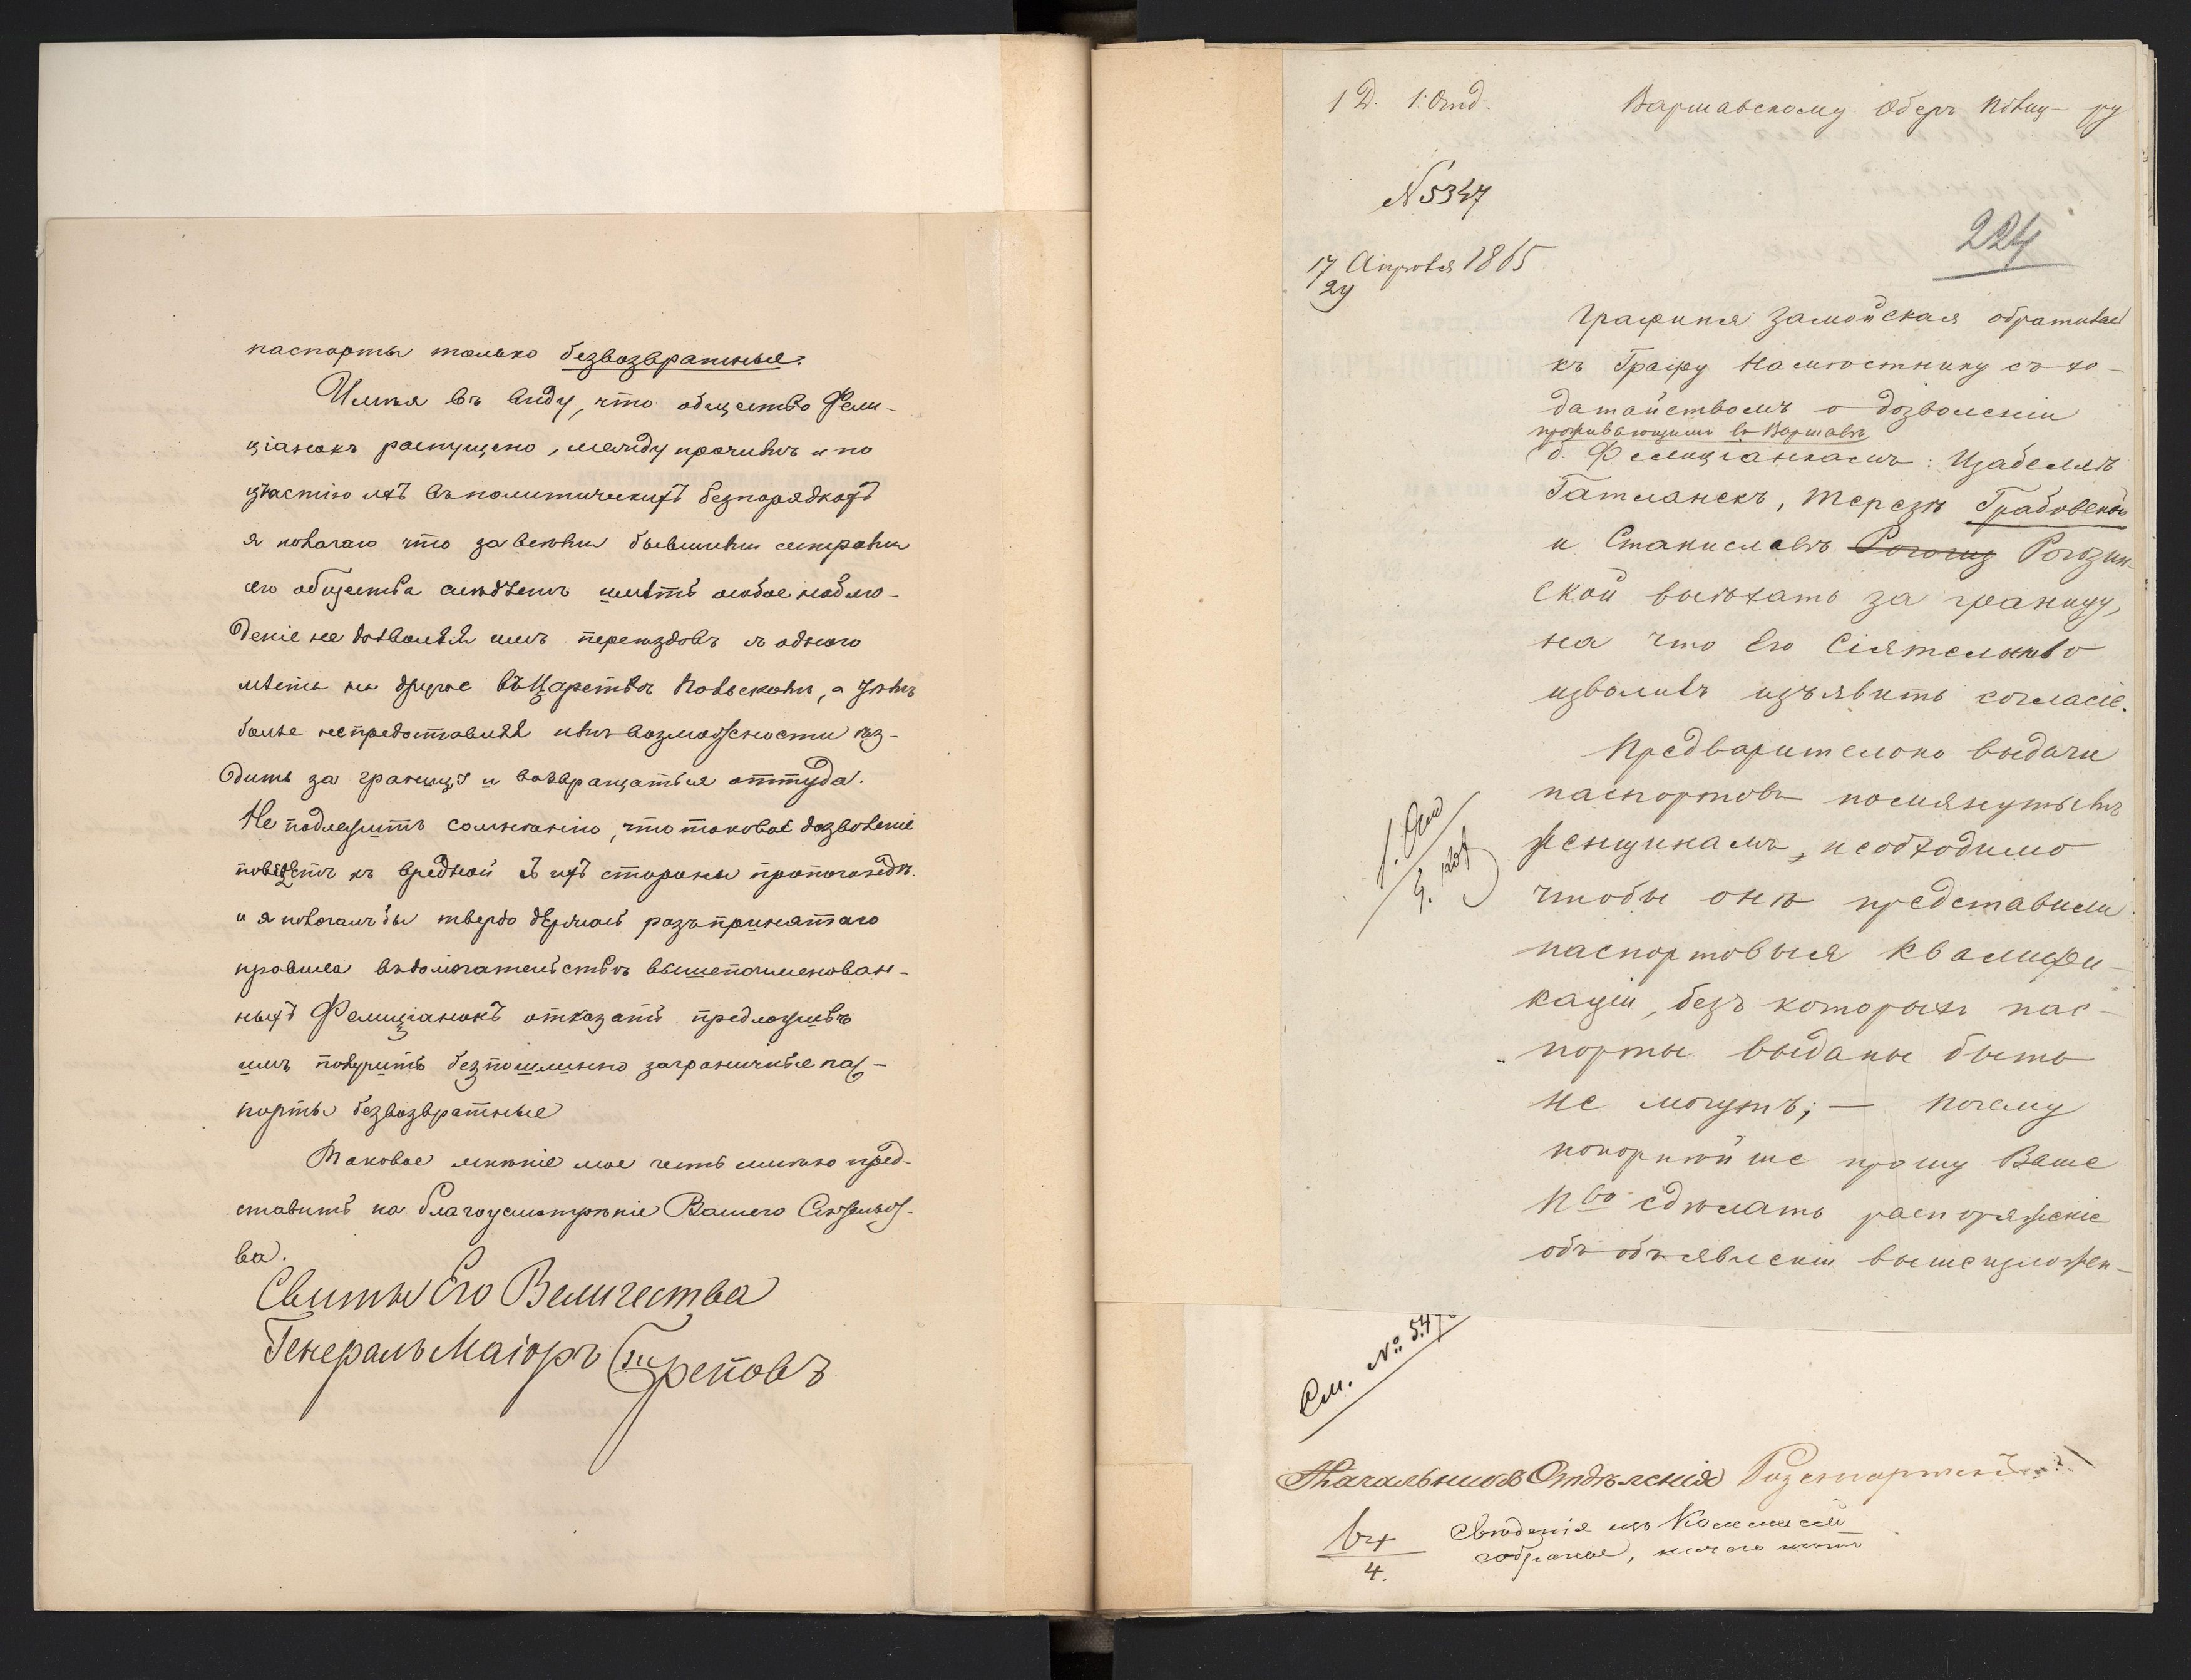 паспорты только безвозвратные.
Имѣя въ виду, что общество Фели-
ціанокъ распущено, между прочимъ и по
участію ихъ въ политическихъ безпорядкахъ
я полагаю что за всѣми бывшими сестрами
его общества слѣдуетъ имѣть особое наблю-
деніе не дозволяя имъ переѣздовъ съ одного
мѣста на другое въ Царствѣ Польскомъ, а тѣмъ
болѣе не предоставляя имъ возможности ѣз-
дить за границу и возвращаться оттуда.
Не подлежитъ сомнѣнію, что таковое дозволеніе
поведетъ къ вредной съ ихъ стороны пропагандѣ.
и я полагалъ бы твердо держась разъ принятаго
правила въ домогательствѣ вышепоименован-
ныхъ Фелиціанокъ отказать предложивъ
имъ получить безпошлинно заграничные пас-
порты безвозвратные
Таковое мнѣніе мое честь имѣю пред-
ставить на благоусмотрѣніе Вашего Сіятельст-
ва.
Свиты Его Величества
Генералъ Маіоръ Треповъ
1 Д. 1. Отд. Варшавскому Оберъ Полиц-ру
N 5347
224
17/29 Апрѣля 1865
Графиня Замойская обратилась
къ Графу Намѣстнику съ хо-
датайствомъ о дозволеніи
проживающимъ въ Варшавѣ
б. Фелиціанкамъ: Изабеллѣ
Гатманскъ, Терезѣ Грабовской
и Станиславѣ Рогозин-
ской выѣхать за границу,
на что Его Сіятельство
изволилъ изъявить согласіе.
Предварительно выдачи
паспортовъ помянутымъ
женщинамъ, необходимо
чтобы онѣ представили
паспортовыя квалифи-
каціи, безъ которыхъ пас-
порты выданы быть
не могутъ; — почему
покорнѣйше прошу Ваше
П во сдѣлать распоряженіе
объ объявленіи вышеизложен-
См. № 547
Начальникъ Отдѣленія
Свѣденія изъ Коммисіи
4.